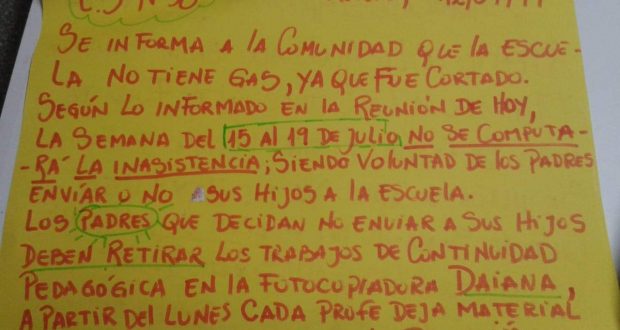 SE INFORMA A LA COMUNIDAD QUE LA ESCUE-
LA NO TIENE GAS, YA QUE FUE CORTADO.
SEGÚN LO INFORMADO EN LA REUNIÓN DE HOY,
LA SEMANA DEL 15 AL 19 DE JULIO NO SE COMPUTA-
-RÁ LA INASISTENCIA; SIENDO VOLUNTAD DE LOS PADRES
ENVIAR O NO A SUS HIJOS A LA ESCUELA.
LOS PADRES QUE DECIDAN NO ENVIAR A SUS HIJOS
DEBEN RETIRAR LOS TRABAJOS DE CONTINUIDAD
PEDAGÓGICA EN LA FOTOCOPIADORA DAIANA,
A PARTIR DEL LUNES CADA PROFE DEJA MATERIAL